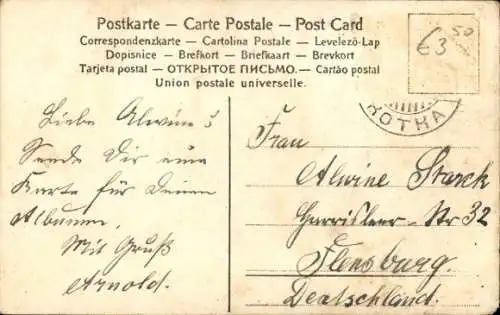 Postkarte – Carte Postale – Post Card
Correspondenzkarte – Cartolina Postale – Levelező-Lap
Dopisnice – Brefkort – Briefkaart – Brevkort
Tarjeta postal – ОТКРЫТОЕ ПИСЬМО. – Cartão postal
Union postale universelle.
€3 50
KOTKA
Liebe Alwine!
Sende Dir eine
Karte für Deinen
Albumm.
Mit Gruß
Arnold.
Frau
Alwine Starck
Str 32
Flensburg.
Deutschland.